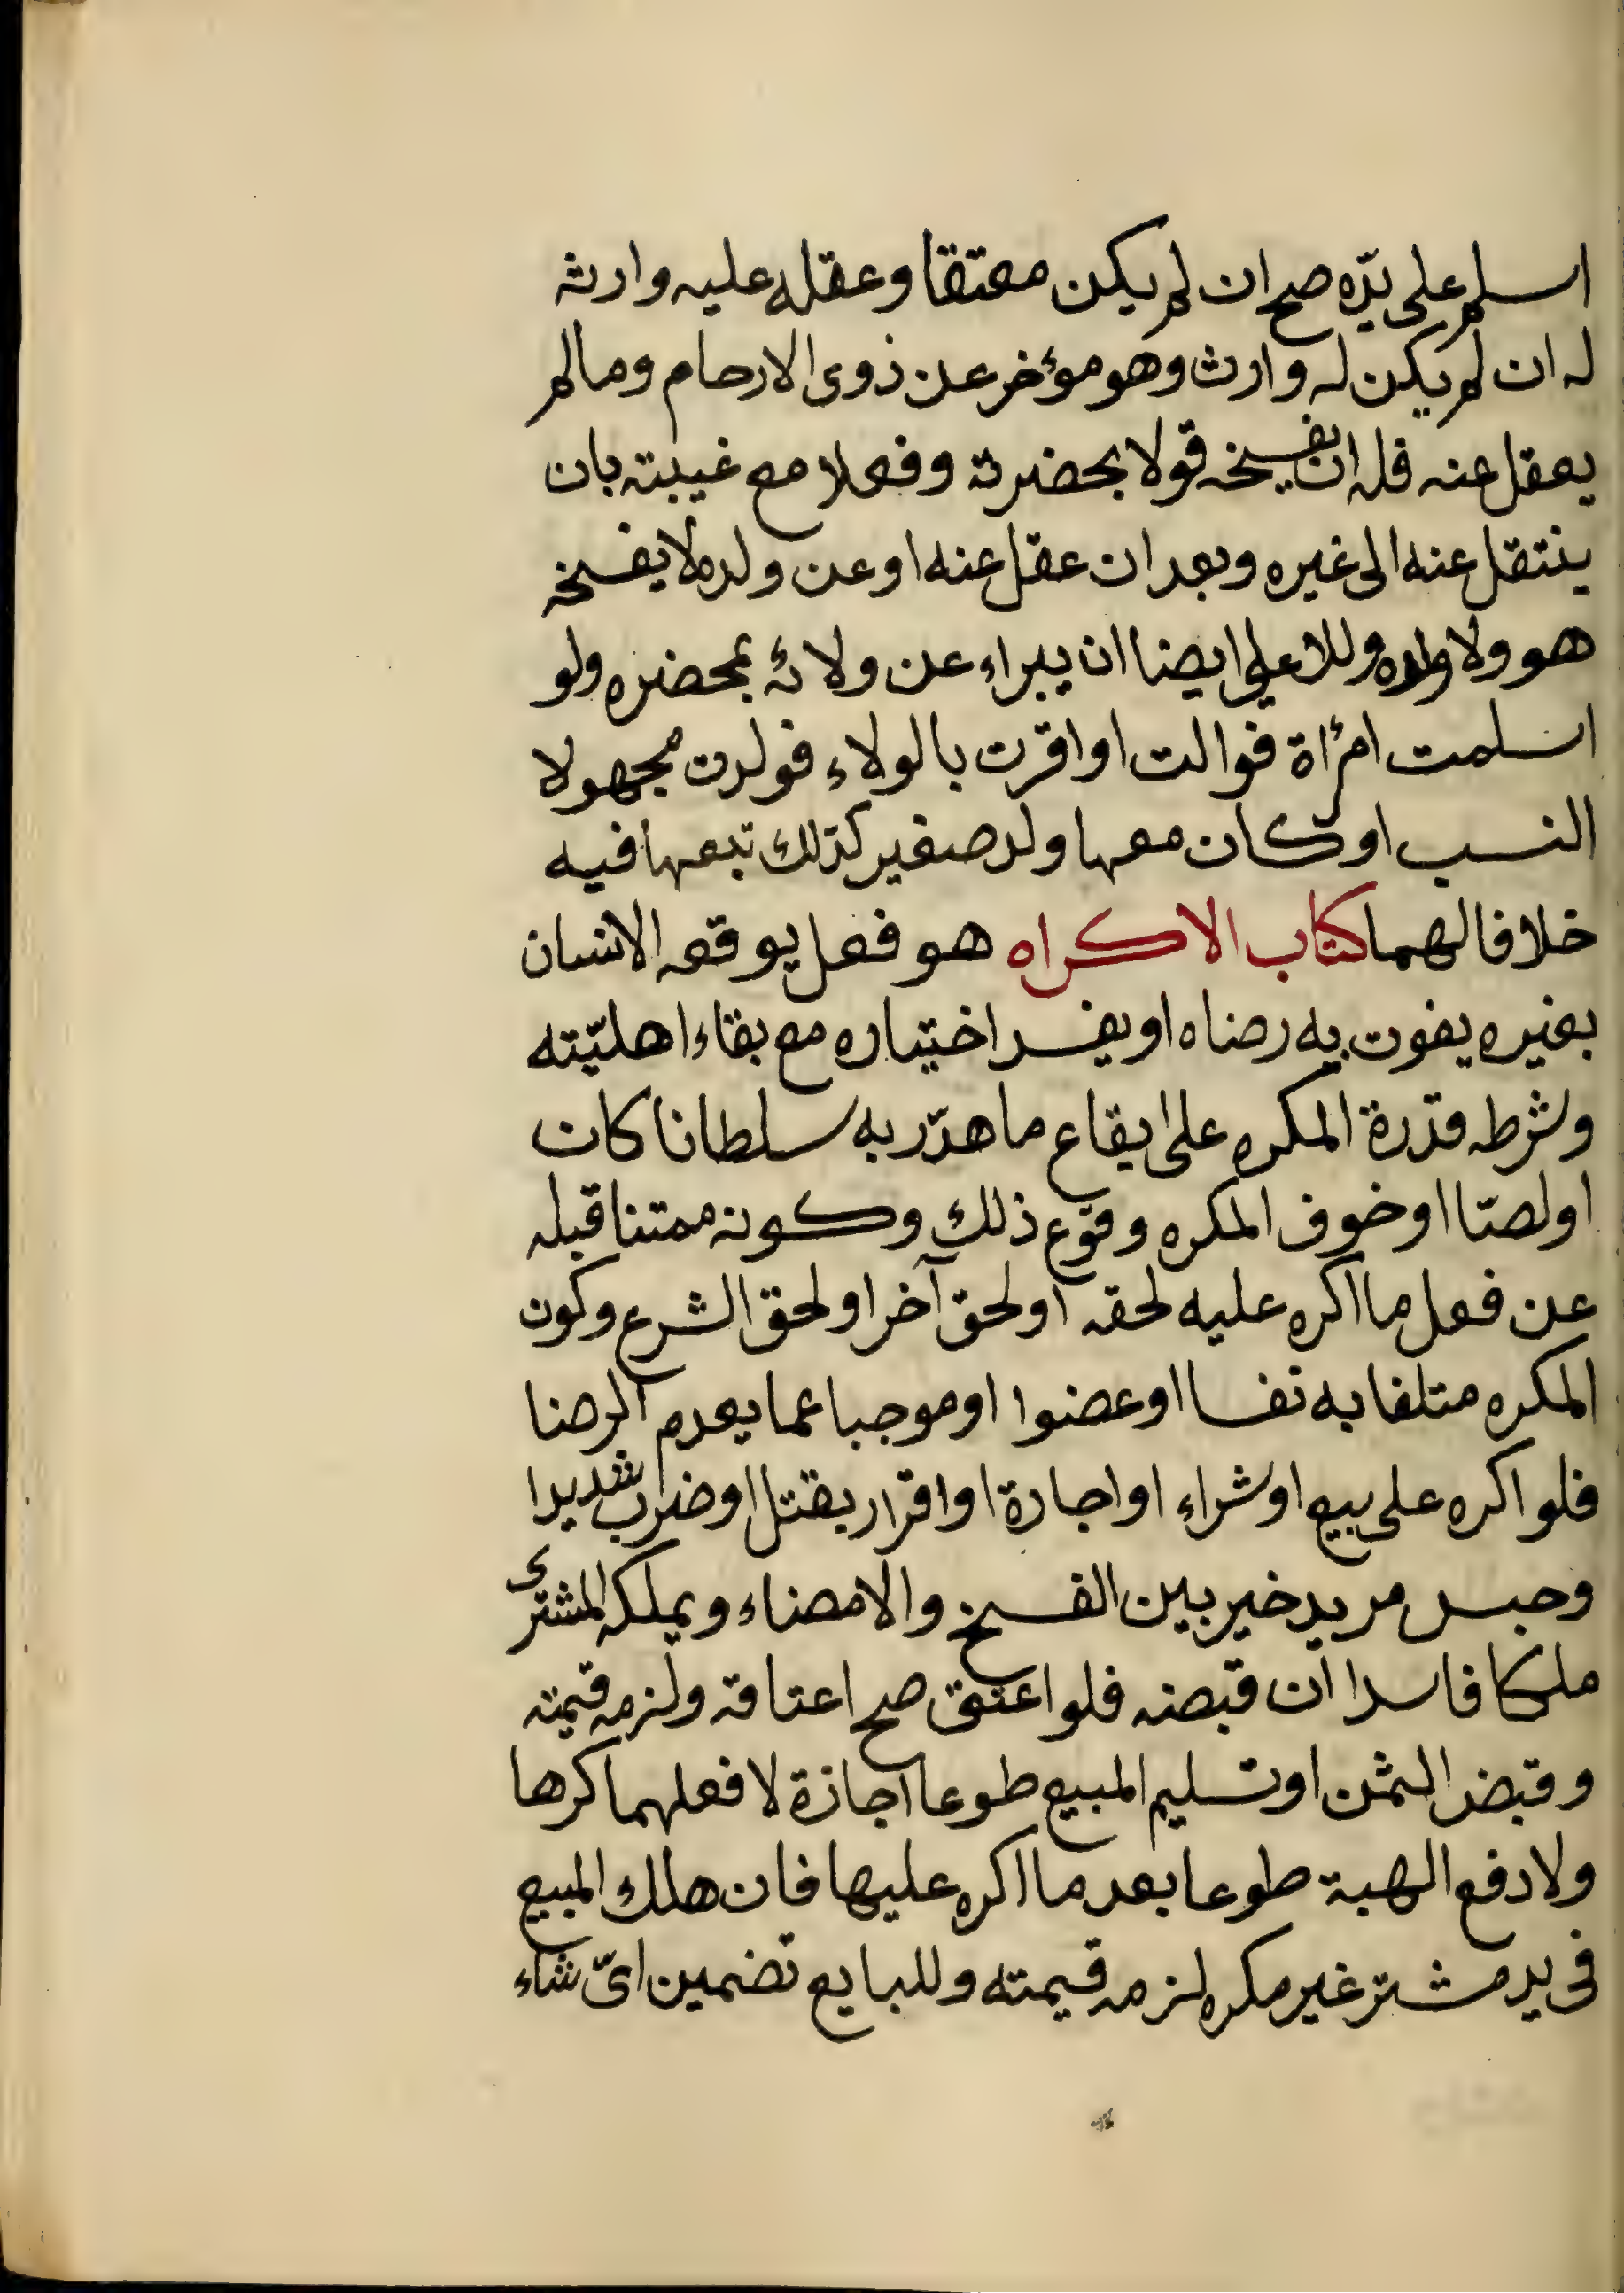 اسلم على يدّه صح ان لم يكن معتقا وعقله عليه وارثه
له ان لم يكن له وارث وهو مؤخر عن ذوى الارحام وما لم
يعقل عنه فله ان يفسخه قولا بحضرته وفعلا مع غيبته بان
ينتقل عنه الى غيره وبعد ان عقل عنه او عن ولده لا يفسخه
هو ولا ولده وللاعلى ايضا ان يبراء عن ولائه بمحضره ولو
اسلمت امرأة فوالت او اقرت بالولاء فولدت مجهولا
النسب او كان معها ولد صغير كذلك تبعها فيه
خلافا لهما كتاب الاكراه هو فعل يوقعه الانسان
بغيره يفوت به رضاه او يفسد اختياره مع بقاء اهليّته
وشرطه قدرة المكره على ايقاع ما هدّد به سلطانا كان
او لصّا او خوف المكره وقوع ذلك وكونه ممتنا قبله
عن فعل ما اكره عليه لحقه او لحق آخر او لحق الشرع وكون
المكره متلفا به نفسا او عضوا او موجبا عما يعدم الرضا
فلو اكره على بيع او شراء او اجارة او اقرار بقتل او ضرب شديدا
وحبس مريد خير بين الفسخ والامضاء ويملكه المشترى
ملكا فاسدا ان قبضه فلو اعتق صح اعتاقه ولزمه قيمته
وقبض الثمن او تسليم المبيع طوعا اجازة لا فعلهما كرها
ولا دفع الهبة طوعا بعد ما اكره عليها فان هلك المبيع
فى يد مشتر غير مكره لزمه قيمته وللبايع تضمين اىّ شاء